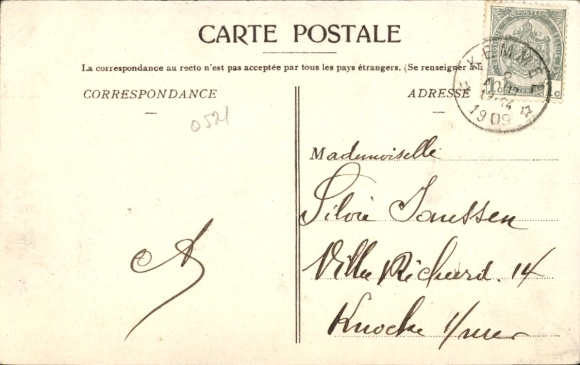 CARTE POSTALE
La correspondance au recto n'est pas acceptée par tous les pays étrangers. (Se renseigner à la
CORRESPONDANCE
ADRESSE
0521
1909
Mademoiselle
Silvie Janssen
Villa Richard. 14
Knocke s/mer